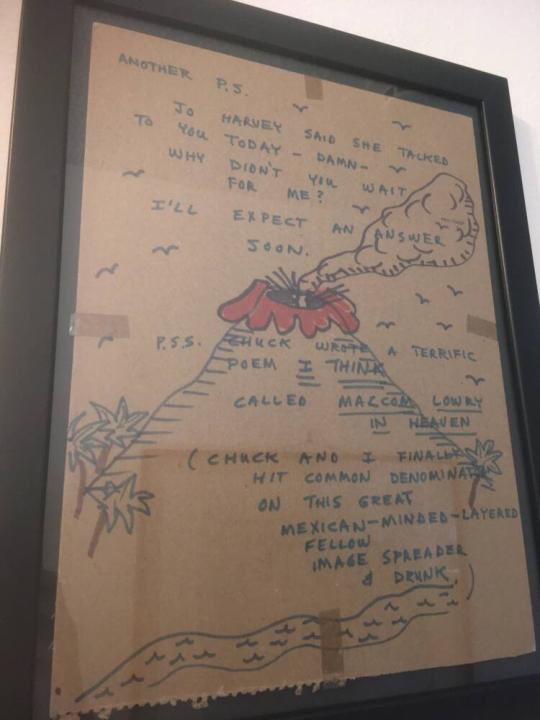 ANOTHER P.S.
JO HARVEY SAID SHE TALKED
TO YOU TODAY - DAMN-
WHY DIDN'T YOU WAIT
FOR ME?
I'LL EXPECT AN ANSWER
SOON.
P.S.S. CHUCK WROTE A TERRIFIC
POEM I THINK
CALLED MALCOM LOWRY
IN HEAVEN
(CHUCK AND I FINALLY
HIT COMMON DENOMINAT
ON THIS GREAT
MEXICAN-MINDED-LAYERED
FELLOW
IMAGE SPREADER
& DRUNK.)